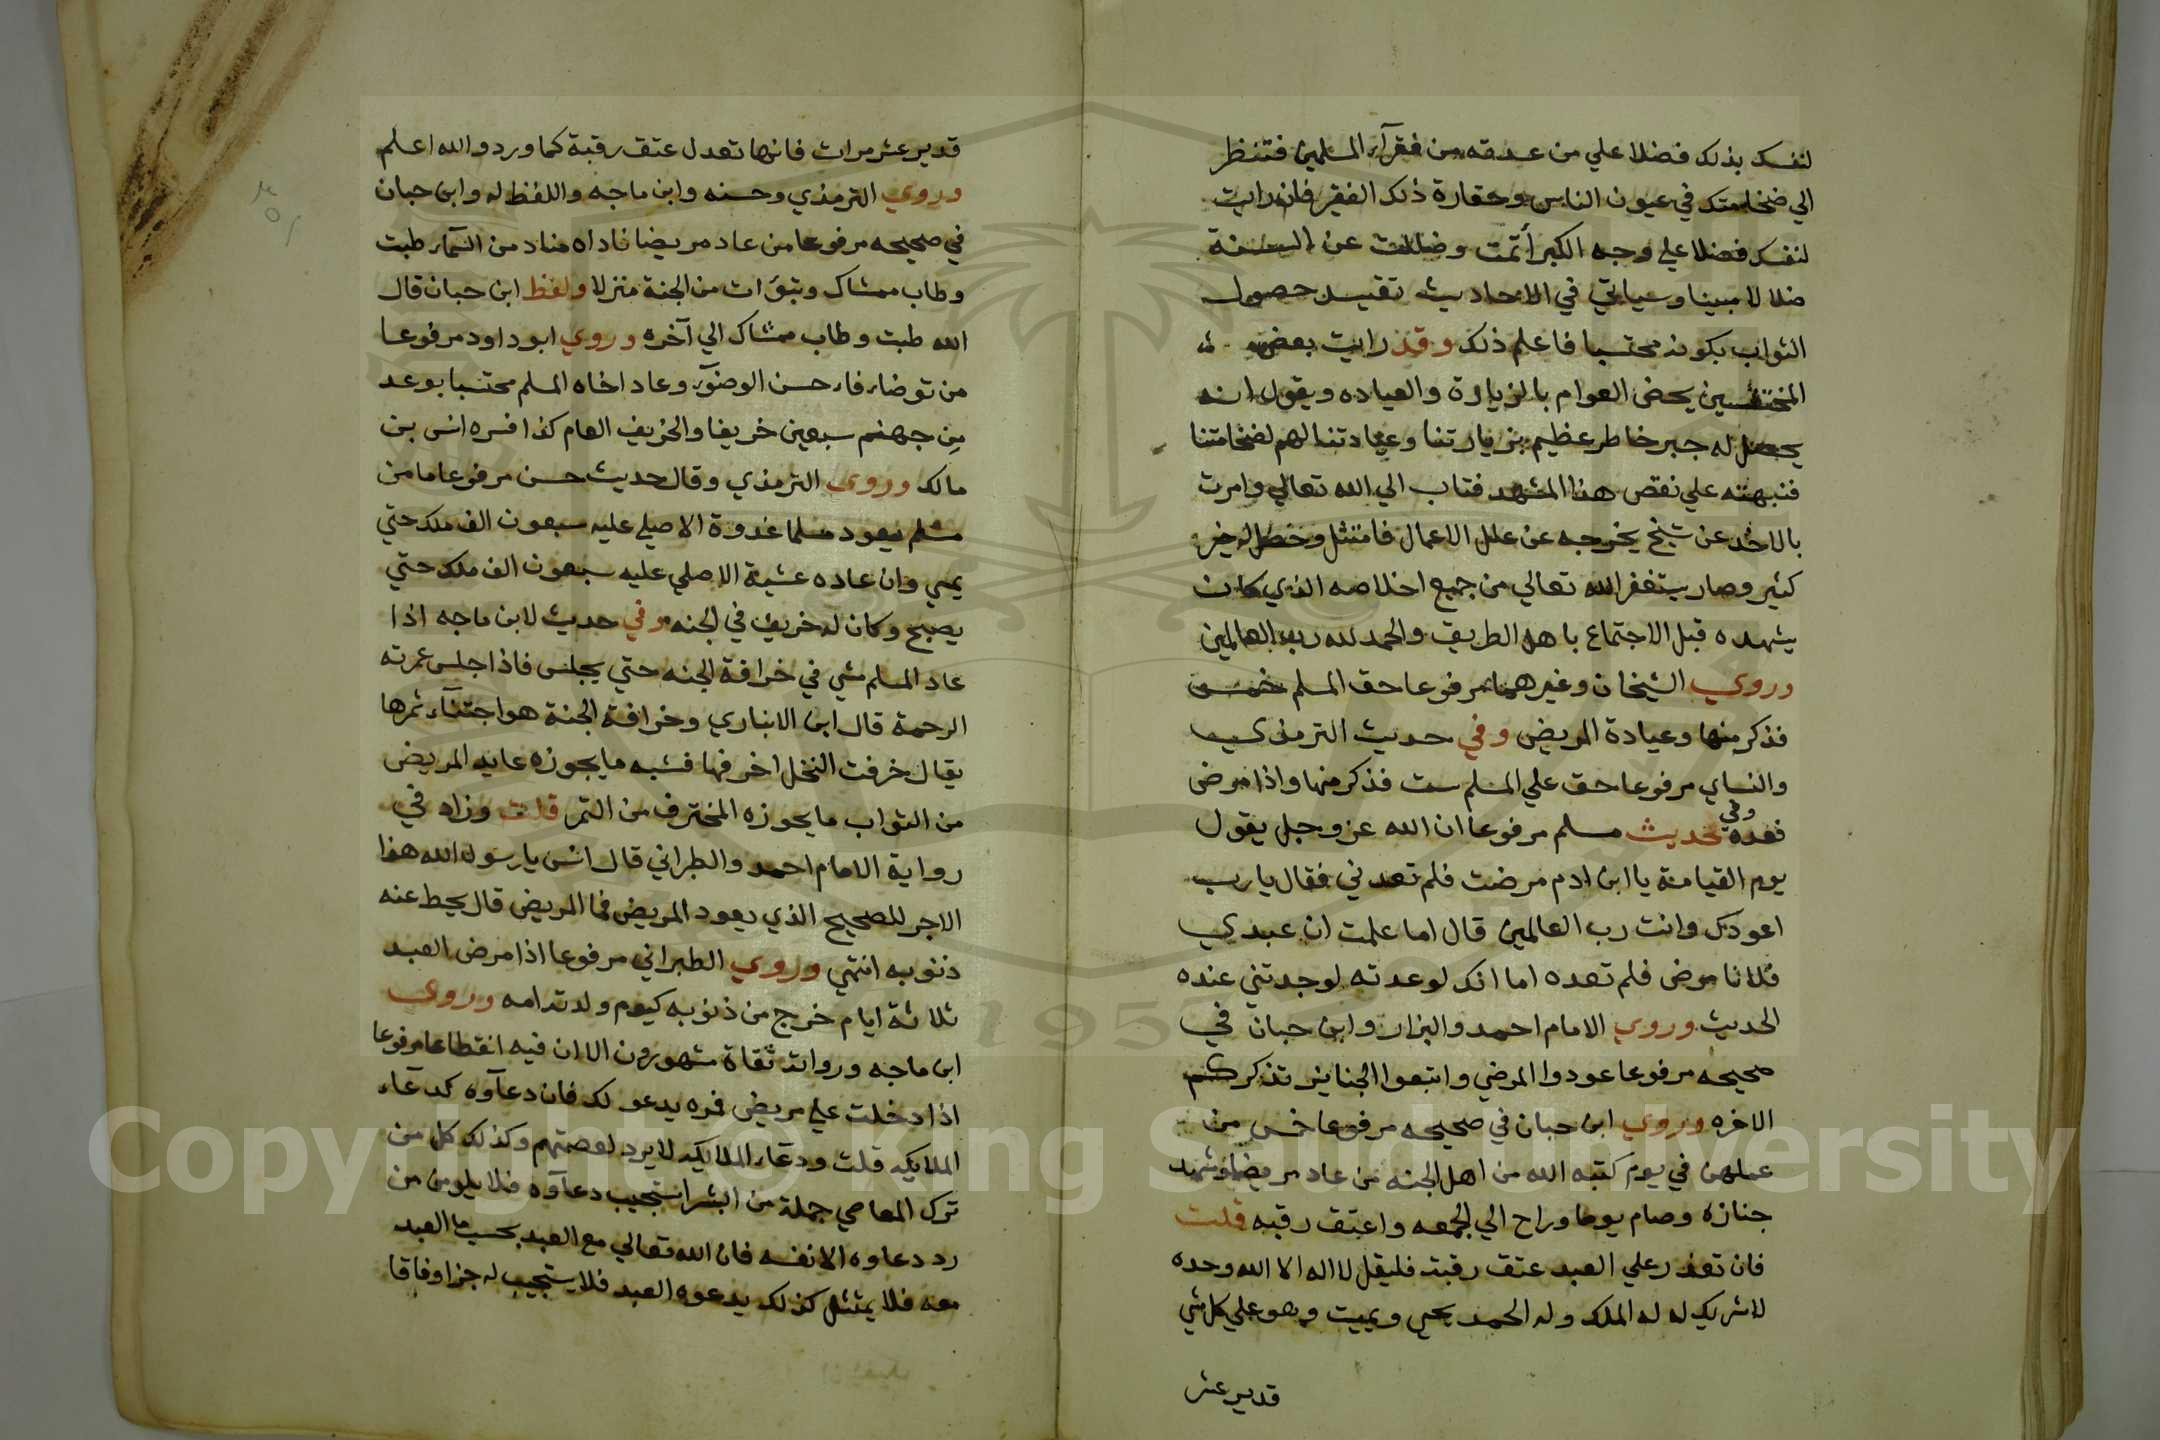 لنفسك بذلك فضلا علي من عدقه من فقرآء المسلمين فتنظر
الي ضخامتك في عيون الناس وحقارة ذلك الفقير فان رايت
لنفسك فضلا علي وجه الكبر أثمت وضللت عن السنة
ضلالا مبينا وسياتي في الاحاديث تقييد حصول
الثواب بكونه محتسبا فاعلم ذلك وقد رايت بعض
يحض العوام بالزيارة والعياده ويقول انه
يحصل له جبر خاطر عظيم بزيارتنا وعيادتنا لهم لضخامتنا
فنبهته علي نقص هذا المشهد فتاب الي الله تعالي وامرته
بالاخذ عن شيخ يخرجه عن علل الاعمال فامتثل وحصل له خير
كثير وصار يستغفر الله تعالي من جميع اخلاصه الذي كان
يشهده قبل الاجتماع باهل الطريق والحمد لله رب العالمين
وروي الشيخان وغيرهما مرفوعا حق المسلم خمس
فذكر منها وعيادة المريض وفي حديث الترمذي
والنساي مرفوعا حق علي المسلم ست فذكر منها واذا مرض
فعده وفي حديث مسلم مرفوعا ان الله عز وجل يقول
يوم القيامة يا ابن ادم مرضت فلم تعدني فقال يا رب
اعودك وانت رب العالمين قال اما علمت ان عبدي
فلانا مرض فلم تعده اما انك لو عدته لوجدتني عنده
الحديث وروي الامام احمد والبزار وابن حبان في
صحيحه مرفوعا عودوا المرضي واتبعوا الجنايز تذكركم
الاخره وروي ابن حبان في صحيحه مرفوعا خمس من
عملهن في يوم كتبه الله من اهل الجنه من عاد مريضا وشهد
جنازه وصام يوما وراح الي الجمعه واعتق رقبه قلت
فان تعذر علي العبد عتق رقبة فليقل لا اله الا الله وحده
لا شريك له له الملك وله الحمد يحيي ويميت وهو علي كل شي
قدير عشر
قدير عشر مرات فانها تعدل عتق رقبة كما ورد والله اعلم
وروي الترمذي وحسنه وابن ماجه واللفظ له وابن حبان
في صحيحه مرفوعا من عاد مريضا ناداه مناد من السمآء طبت
وطاب ممشاك وتبوات من الجنة منزلا ولفظ ابن حبان قال
الله طبت وطاب ممشاك الي آخره وروي ابو داود مرفوعا
من توضا حسن الوضوء وعاد اخاه المسلم محتسبا بوعد
من جهنم سبعين خريفا والخريف العام كذا فسره انس بن
مالك وروي الترمذي وقال حديث حسن مرفوعا ما من
مسلم يعود مسلما غدوة الا صلي عليه سبعون الف ملك حتي
يمسي وان عاده عشية الا صلي عليه سبعون الف ملك حتي
يصبح وكان له خريف في الجنه وفي حديث لابن ماجه اذا
عاد المسلم مشي في خرافة الجنه حتي يجلس فاذا جلس غمرته
الرحمة قال ابن الانباري وخرافة الجنة هو اجتنآء ثمرها
يقال خرفت النخل اخرفها فشبه ما يحوزه عايد المريض
من الثواب ما يحوزه المخترف من الثمر قلت وزاد في
رواية الامام احمد والطبراني قال انس يا رسول الله هذا
الاجر للصحيح الذي يعود المريض فما للمريض قال يحط عنه
ذنوبه انتهي وروي الطبراني مرفوعا اذا مرض العبد
ثلاثة ايام خرج من ذنوبه كيوم ولدته امه وروي
ابن ماجه ورواته ثقاة مشهورون الا ان فيه انقطاعا مرفوعا
اذا دخلت علي مريض فمره يدعو لك فان دعآوه كدعآء
الملايكه قلت ودعآء الملايكه لا يرد لعصمتهم وكذلك كل من
ترك المعاصي جملة من البشر استجيب دعآوه فلا يلومن من
رد دعاوه الا نفسه فان الله تعالي مع العبد بحسب ما العبد
معه فلا يمتثل كذلك يدعوه العبد فلا يستجيب له جزا وفاقا
Copyright © King Saud University
1957